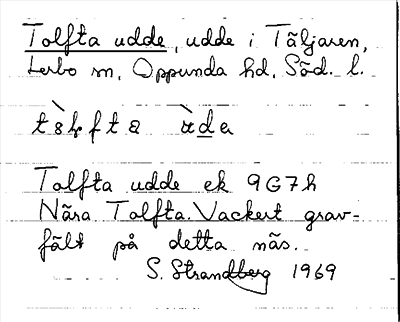 Tolfta udde, udde i Täljaren,
Lerbo sn, Oppunda hd, Söd. l.
Tolfta udde ek 9G7h
Nära Tolfta. Vackert grav-
fält på detta näs.
S. Strandberg 1969